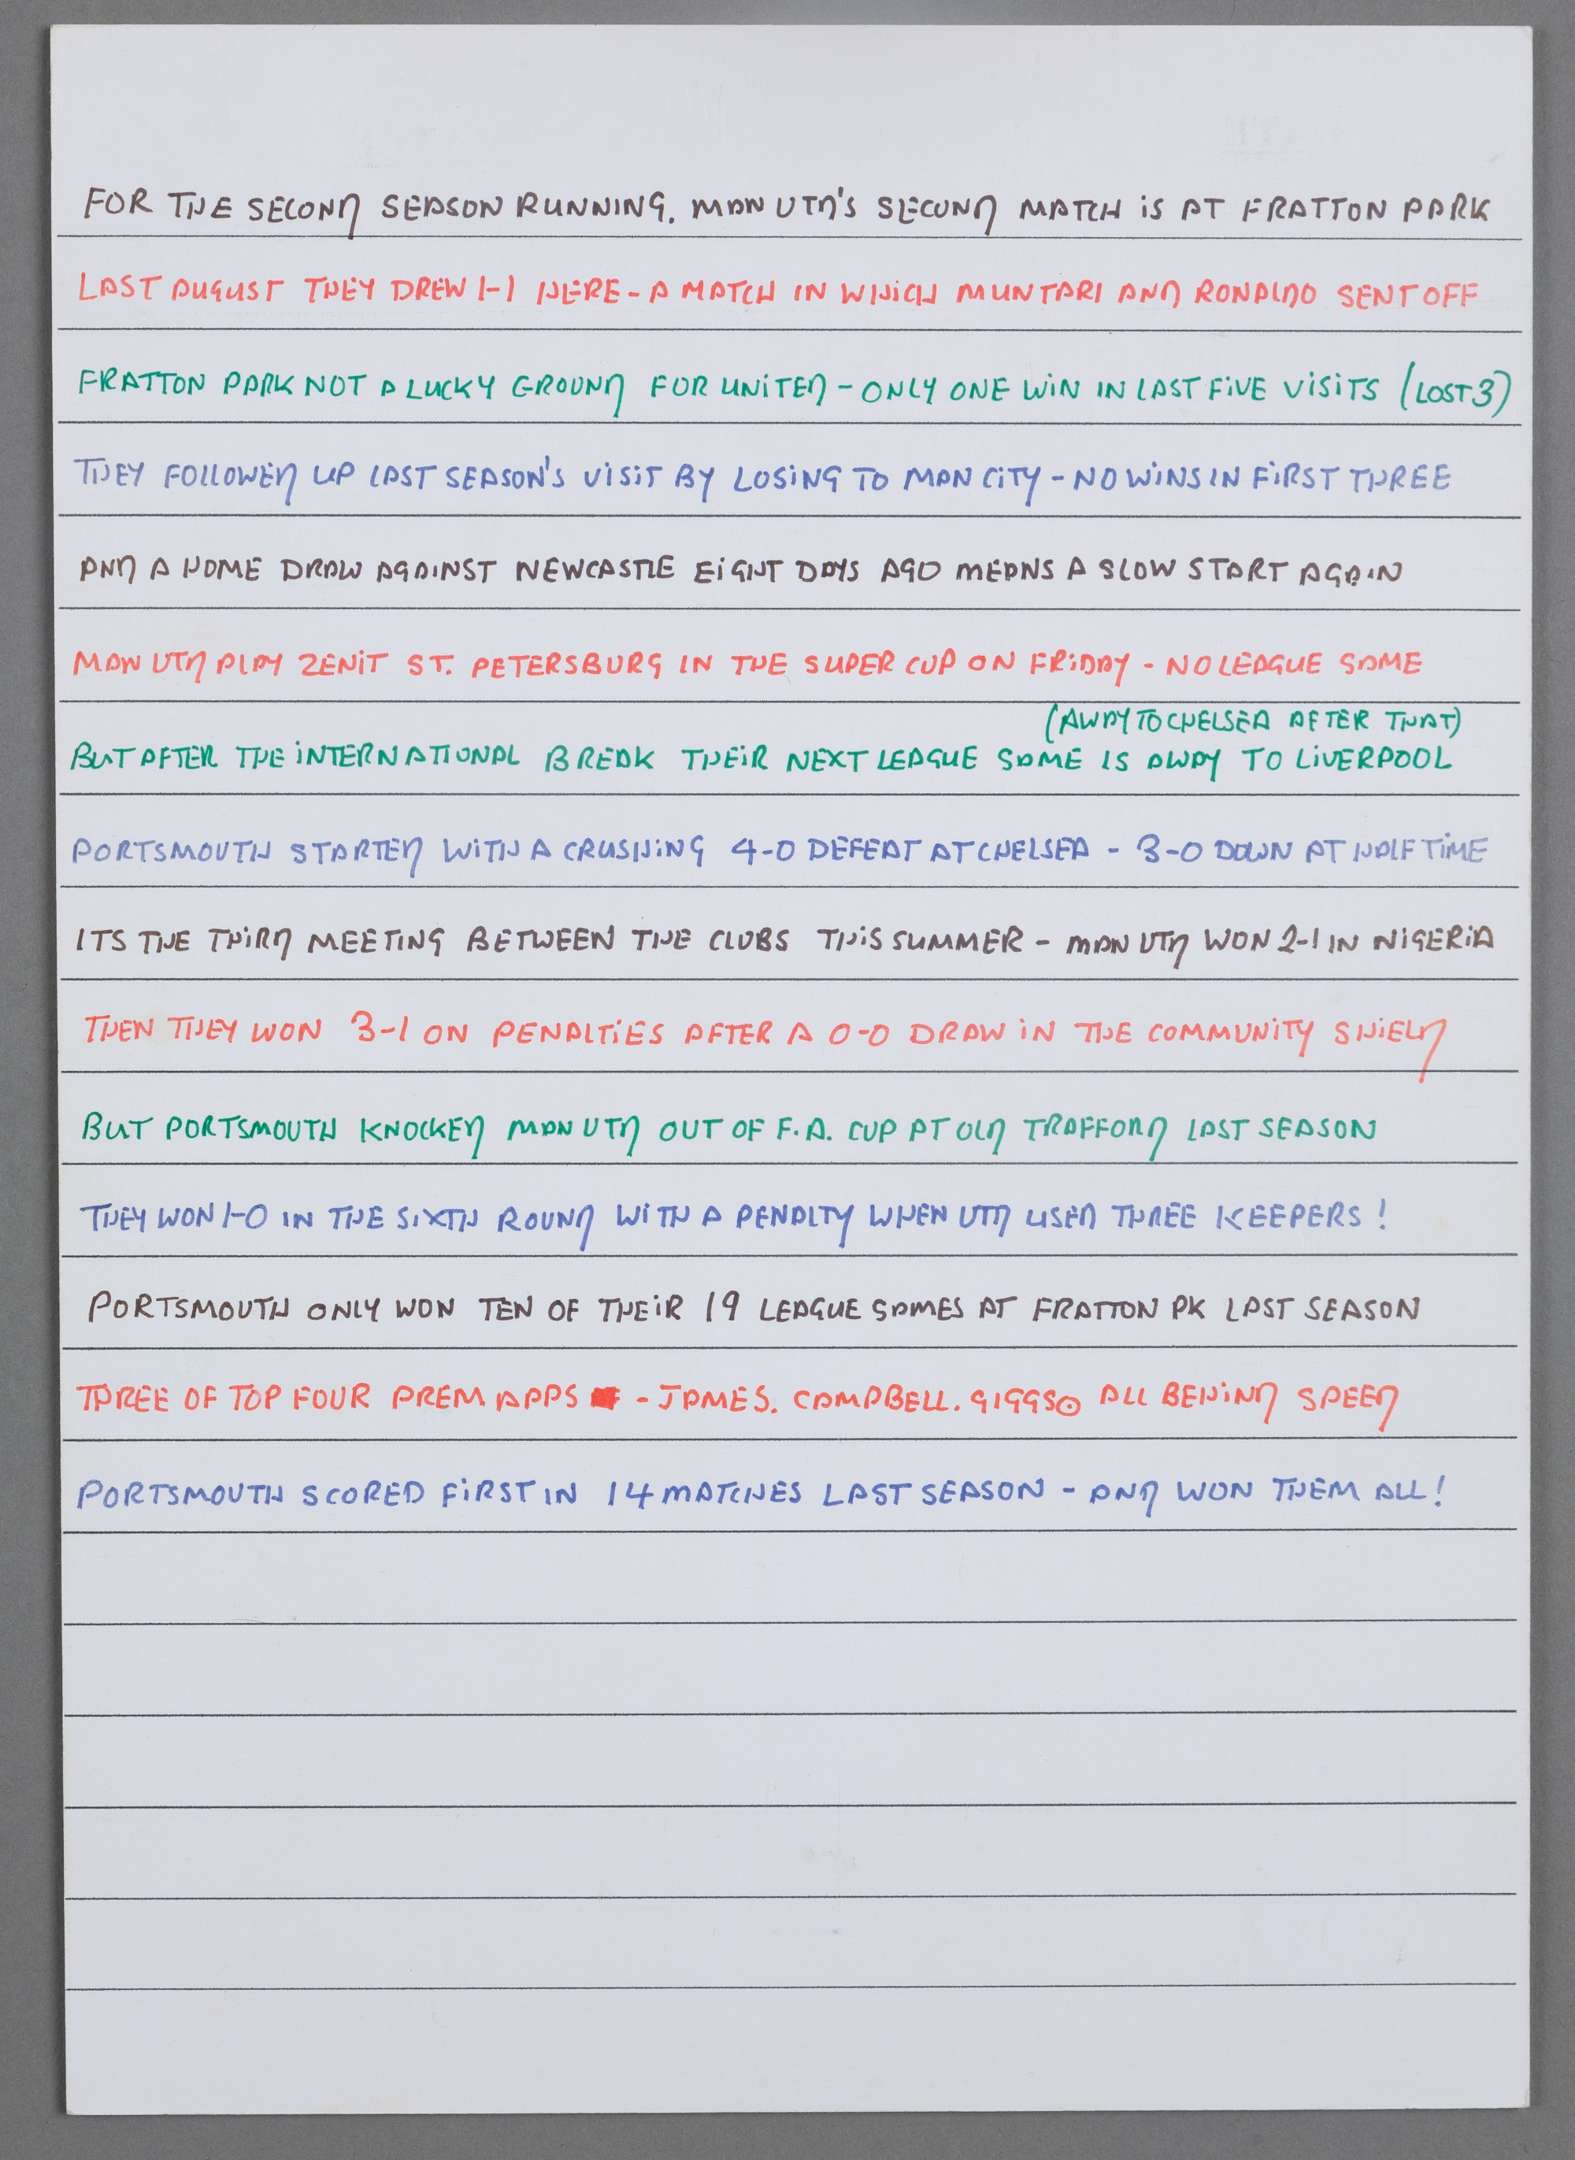 FOR THE SECOND SEASON RUNNING. MAN UTD'S SECOND MATCH IS AT FRATTON PARK
LAST AUGUST THEY DREW 1-1 HERE - A MATCH IN WHICH MUNTARI AND RONALDO SENT OFF
FRATTON PARK NOT A LUCKY GROUND FOR UNITED - ONLY ONE WIN IN LAST FIVE VISITS (LOST 3)
THEY FOLLOWED UP LAST SEASON'S VISIT BY LOSING TO MAN CITY - NO WINS IN FIRST THREE
AND A HOME DRAW AGAINST NEWCASTLE EIGHT DAYS AGO MEANS A SLOW START AGAIN
MAN UTD PLAY ZENIT ST. PETERSBURG IN THE SUPER CUP ON FRIDAY - NO LEAGUE GAME
(AWAY TO CHELSEA AFTER THAT)
BUT AFTER THE INTERNATIONAL BREAK THEIR NEXT LEAGUE GAME IS AWAY TO LIVERPOOL
PORTSMOUTH STARTED WITH A CRUSHING 4-0 DEFEAT AT CHELSEA - 3-0 DOWN AT HALF TIME
ITS THE THIRD MEETING BETWEEN THE CLUBS THIS SUMMER - MAN UTD WON 2-1 IN NIGERIA
THEN THEY WON 3-1 ON PENALTIES AFTER A 0-0 DRAW IN THE COMMUNITY SHIELD
BUT PORTSMOUTH KNOCKED MAN UTD OUT OF F.A. CUP AT OLD TRAFFORD LAST SEASON
THEY WON 1-0 IN THE SIXTH ROUND WITH A PENALTY WHEN UTD USED THREE KEEPERS!
PORTSMOUTH ONLY WON TEN OF THEIR 19 LEAGUE GAMES AT FRATTON PK LAST SEASON
THREE OF TOP FOUR PREM APPS - JAMES. CAMPBELL. GIGGS. ALL BEHIND SPEED
PORTSMOUTH SCORED FIRST IN 14 MATCHES LAST SEASON - AND WON THEM ALL!